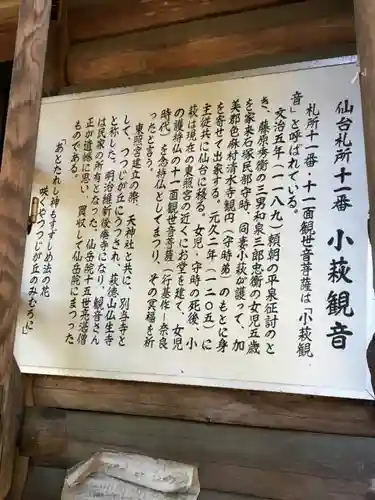 仙台札所十一番　小萩観音
札所十一番・十一面観世音菩薩は「小萩観
音」と呼ばれている。
文治五年（一一八九）頼朝の平泉征討のと
き、藤原秀衡の三男和泉三郎忠衡の女児五歳
を家来石塚民部守時、同素小萩が護って、加
美郡色麻村清水寺観円（守時弟）のもとに身
を寄せて出家する。元久二年（一二〇五）に
主従共に仙台に移る。女児・守時の死後、小
萩は現在の東照宮の近くにお堂を建て、女児
の護持仏の十一面観世音菩薩（行基作＝奈良
時代）を念持仏としてまつり、その冥福を祈
ったと言う。
東照宮建立の際、天神社と共に、別当寺と
して、つつじが丘にうつされ、萩徳山仏生寺
と称した。明治維新後廃寺になり、観音さん
は民家の所有となった。仙岳院十五世亮諶僧
正が遺憾に思い、買収して仙岳院にまつった
ものである。
「あとたれし神もすずしめ法の花
咲くやつつじが丘のみむろに」